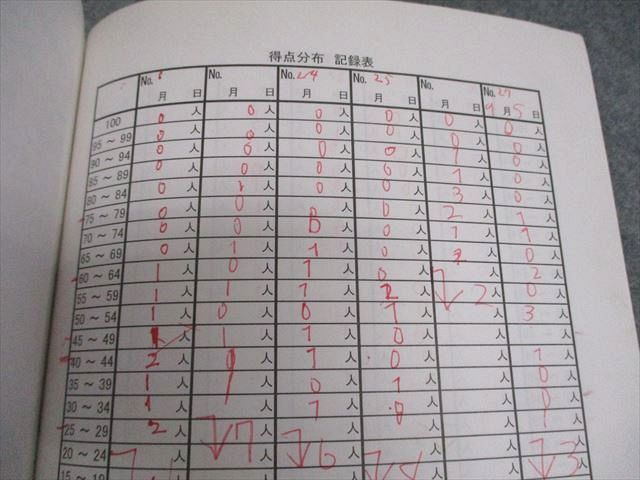 得点分布 記録表
No. 8 No. No. 24 No. 25 No. No. 27
月 日 月 日 月 日 月 日 月 日 9月5日
100 0人 0人 0人 0人 0人 0人
95～99 0人 0人 0人 0人 0人 0人
90～94 0人 0人 0人 0人 1人 0人
85～89 0人 0人 0人 0人 1人 0人
80～84 0人 1人 0人 0人 3人 0人
75～79 0人 0人 人 0人 2人 1人
70～74 0人 0人 0人 人 1人 1人
65～69 0人 1人 1人 人 2人 0人
60～64 1人 0人 1人 0人 人 2人
55～59 1人 1人 1人 2人 2人 0人
50～54 1人 0人 0人 1人 人 3人
45～49 1人 1人 1人 0人 人 人
40～44 2人 0人 1人 0人 人 1人
35～39 1人 1人 0人 1人 人 0人
30～34 1人 人 1人 0人 人 0人
25～29 2人 7人 人 人 人 1人
20～24 人 人 6人 人 人 3人
15～19